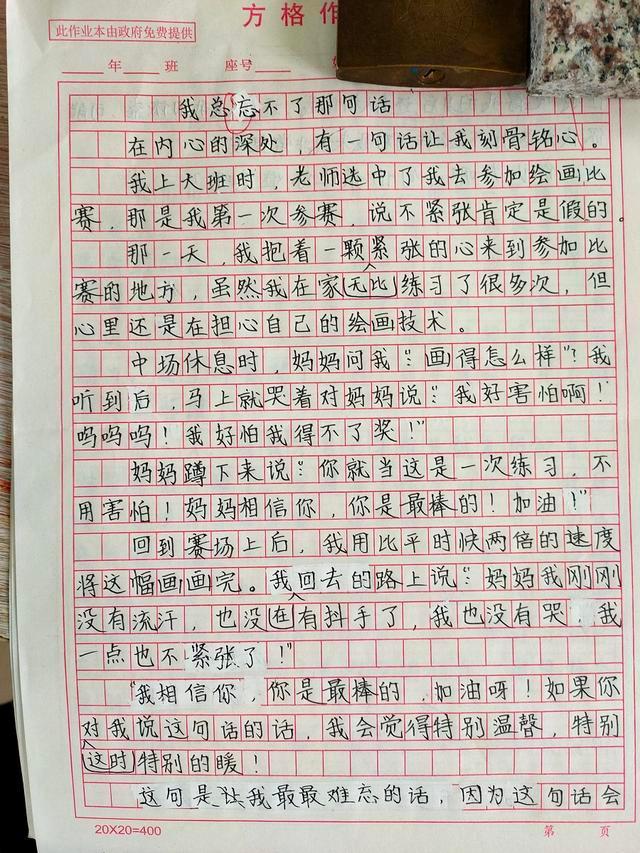 方格作
此作业本由政府免费提供
年 班 座号
我总忘不了那句话
在内心的深处，有一句话让我刻骨铭心。
我上大班时，老师选中了我去参加绘画比
赛，那是我第一次参赛，说不紧张肯定是假的。
那一天，我抱着一颗紧张的心来到参加比
赛的地方，虽然我在家无比练习了很多次，但
心里还是在担心自己的绘画技术。
中场休息时，妈妈问我：“画得怎么样”？我
听到后，马上就哭着对妈妈说：“我好害怕啊！
呜呜呜！我好怕我得不了奖！”
妈妈蹲下来说：“你就当这是一次练习，不
用害怕！妈妈相信你，你是最棒的！加油！”
回到赛场上后，我用比平时快两倍的速度
将这幅画画完。我回去的路上说：“妈妈我刚刚
没有流汗，也没在有抖手了，我也没有哭，我
一点也不紧张了！”
“我相信你”，你是最棒的，加油呀！如果你
对我说这句话的话，我会觉得特别温馨，特别
这时特别的暖！
这句是让我最最难忘的话，因为这句话会
20X20=400
第 页